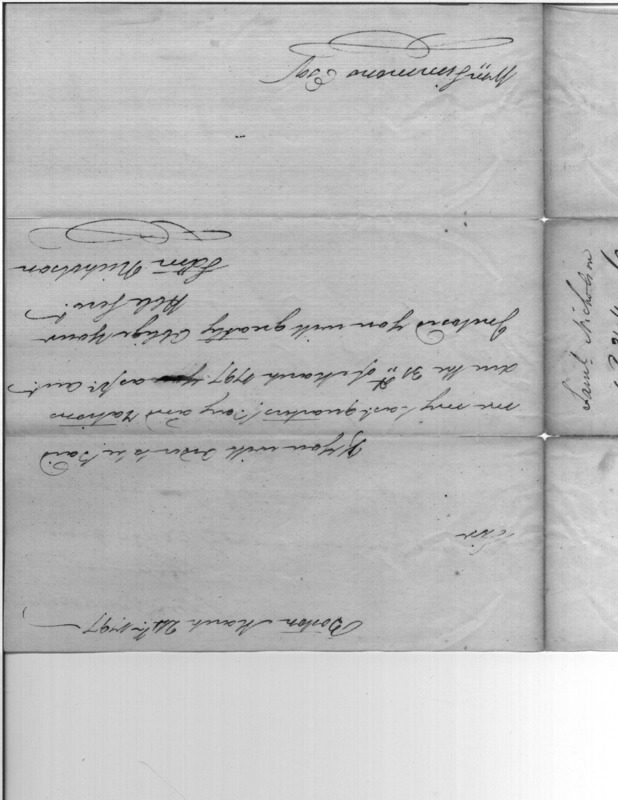 Boston March 24th 1797
Sir
If you will order to be Paid
me my Last quarters Pay and Rations
due the 31st of March 1797 as pr. Acct
Inclosed you will greatly Oblige Your
Hble Serv.t
Saml Nicholson
Wm Simmons Esqr
Saml. Nicholson